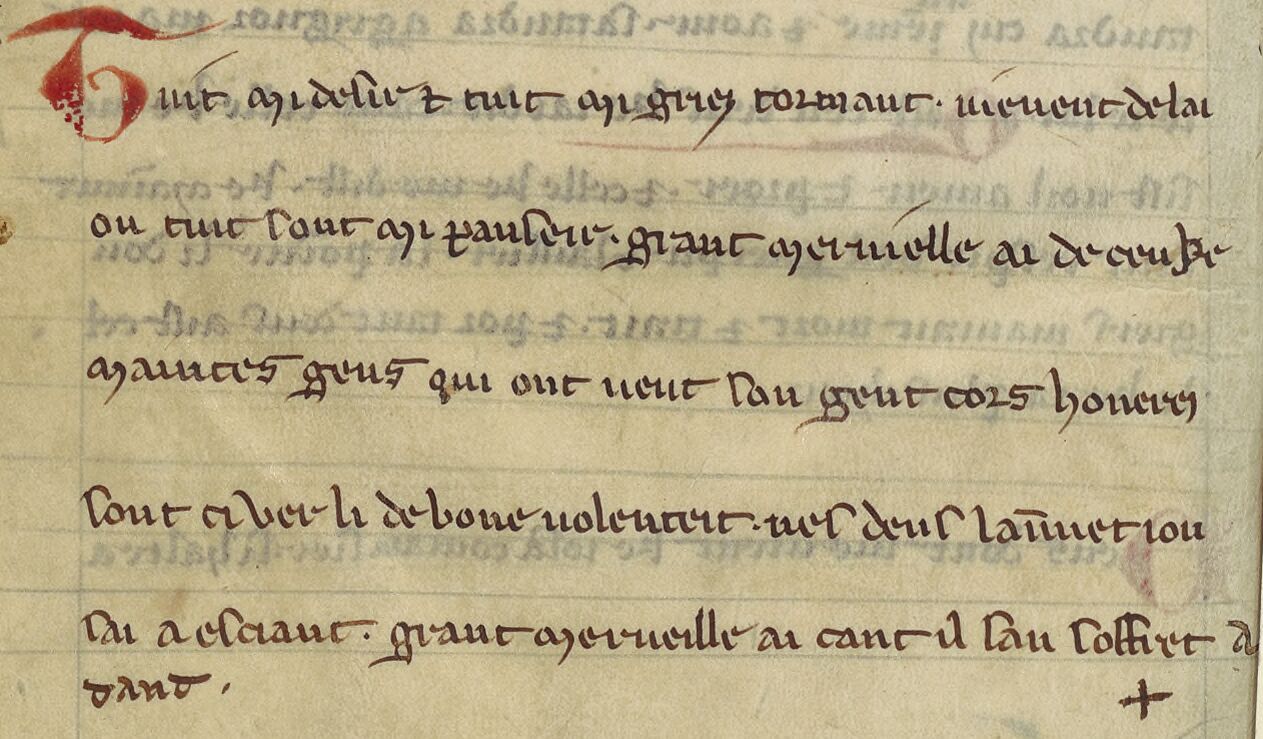 Tuit mi desir ⁊ tuit mi grief tormant · uienent de lai
ou tuit sont mi panseir · grant meruielle ai de ceu ke
maintes gens qui ont ueut san gent cors honerei
sont ci ver li de bone uolenteit · nes deus lainmet iou
sai a esciant · grant merueille ai cant il san soffret a
tant .
+